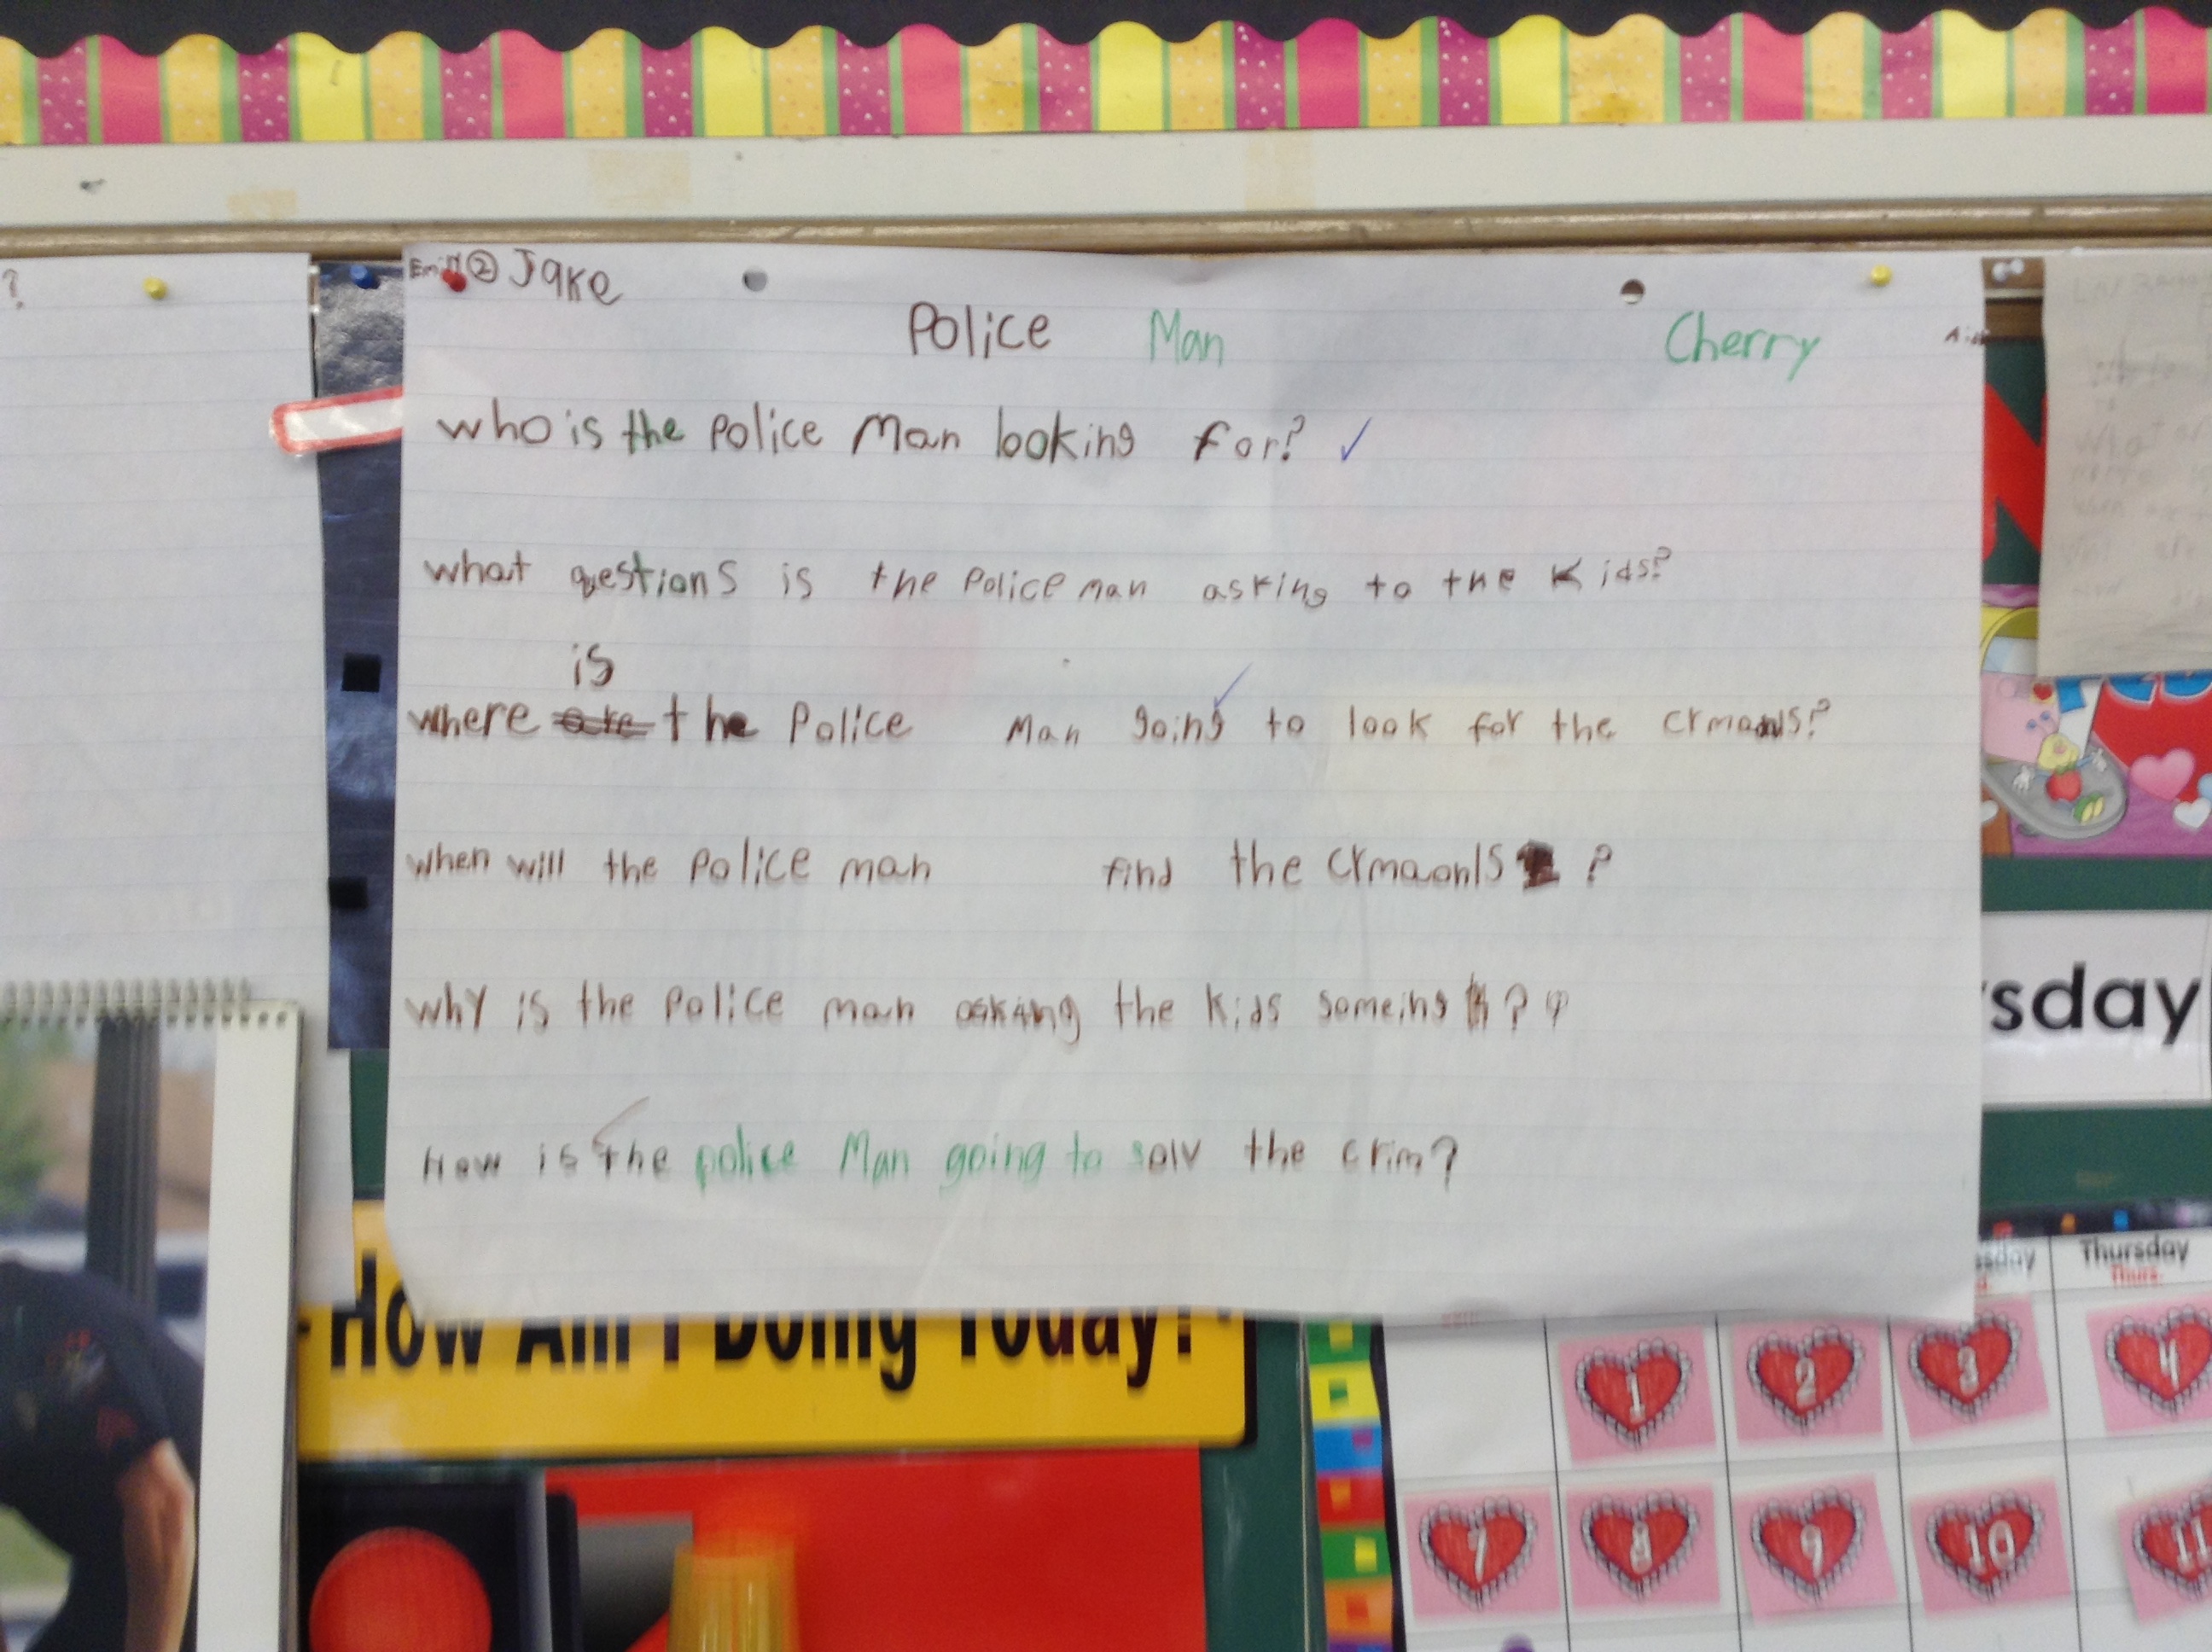 ② Jake
Police Man Cherry
who is the police Man looking for? ✓
what questions is the Police man asking to the Kids?
is
where are the Police Man going to look for the crmaonls?
when will the police man find the crmaonls ?
why is the police man asking the kids someing ?
How is the police Man going to solv the crim?
sday
How Am I Doing Today?
Thursday
Thurs.
1 2 3 4
7 8 9 10 11